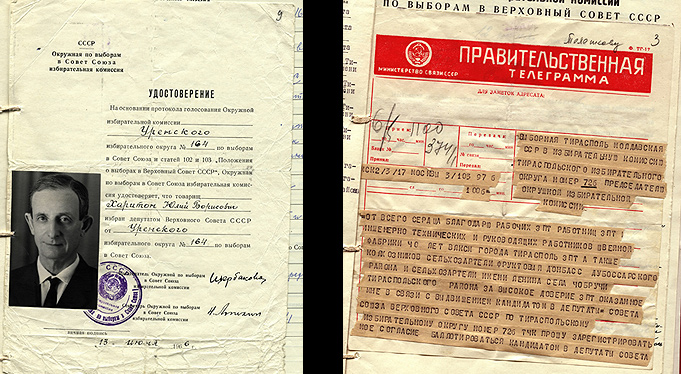 9
СССР
Окружная по выборам
в Совет Союза
избирательная комиссия
УДОСТОВЕРЕНИЕ
На основании протокола голосования Окружной
избирательной комиссии
Уренского
избирательного округа № 164 по выборам
в Совет Союза и статей 102 и 103 „Положения
о выборах в Верховный Совет СССР", Окружная
по выборам в Совет Союза избирательная комис-
сия удостоверяет, что товарищ
Харитон Юлий Борисович
избран депутатом Верховного Совета СССР
от Уренского
избирательного округа № 164
Окружной по выборам
в Совет Союза
избирательной комиссии
Щербакова
Окружной по выборам
в Совет Союза
избирательной комиссии
СССР
личная подпись
13 июня 196
ПО ВЫБОРАМ В ВЕРХОВНЫЙ СОВЕТ СССР
3
Ф. ТГ-17
МИНИСТЕРСТВО СВЯЗИ СССР
ПРАВИТЕЛЬСТВЕННАЯ
ТЕЛЕГРАММА
ДЛЯ ЗАМЕТОК АДРЕСАТА:
Прием
Передача
Бланк №
Принял
Передал
МСК2/3/17 МОСКВЫ 3/103 97 6
1006
ВЫБОРНАЯ ТИРАСПОЛЬ МОЛДАВСКАЯ
ССР В ИЗБИРАТЕЛЬНУЮ КОМИССИЮ
ТИРАСПОЛЬСКОГО ИЗБИРАТЕЛЬНОГО
ОКРУГА НОМЕР 726 ПРЕДСЕДАТЕЛЮ
ОКРУЖНОЙ ИЗБИРАТЕЛЬНОЙ
КОМИССИИ
ОТ ВСЕГО СЕРДЦА БЛАГОДАРЮ РАБОЧИХ ЗПТ РАБОТНИЦ ЗПТ
ИНЖЕНЕРНО ТЕХНИЧЕСКИХ И РУКОВОДЯЩИХ РАБОТНИКОВ ШВЕЙНОЙ
ФАБРИКИ 40 ЛЕТ ВЛКСМ ГОРОДА ТИРАСПОЛЬ ЗПТ А ТАКЖЕ
КОЛХОЗНИКОВ СЕЛЬХОЗАРТЕЛИ ФРУКТОВЫЙ ДОНБАСС ДУБОССАРСКОГО
РАЙОНА И СЕЛЬХОЗАРТЕЛИ ИМЕНИ ЛЕНИНА СЕЛА ЧОБРУЧИ
ТИРАСПОЛЬСКОГО РАЙОНА ЗА ВЫСОКОЕ ДОВЕРИЕ ЗПТ ОКАЗАННОЕ
МНЕ В СВЯЗИ С ВЫДВИЖЕНИЕМ КАНДИДАТОМ В ДЕПУТАТЫ СОВЕТА
СОЮЗА ВЕРХОВНОГО СОВЕТА СССР ПО ТИРАСПОЛЬСКОМУ
ИЗБИРАТЕЛЬНОМУ ОКРУГУ НОМЕР 726 ТЧК ПРОШУ ЗАРЕГИСТРИРОВАТЬ
МОЕ СОГЛАСИЕ БАЛЛОТИРОВАТЬСЯ КАНДИДАТОМ В ДЕПУТАТЫ СОВЕТА